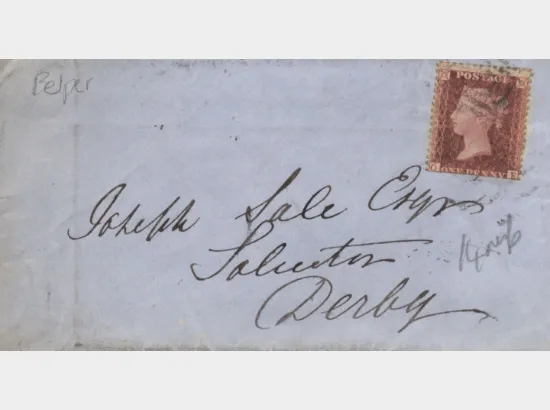 Belper
POSTAGE
ONE PENNY
Joseph Sale Esqre
Solicitor
Derby